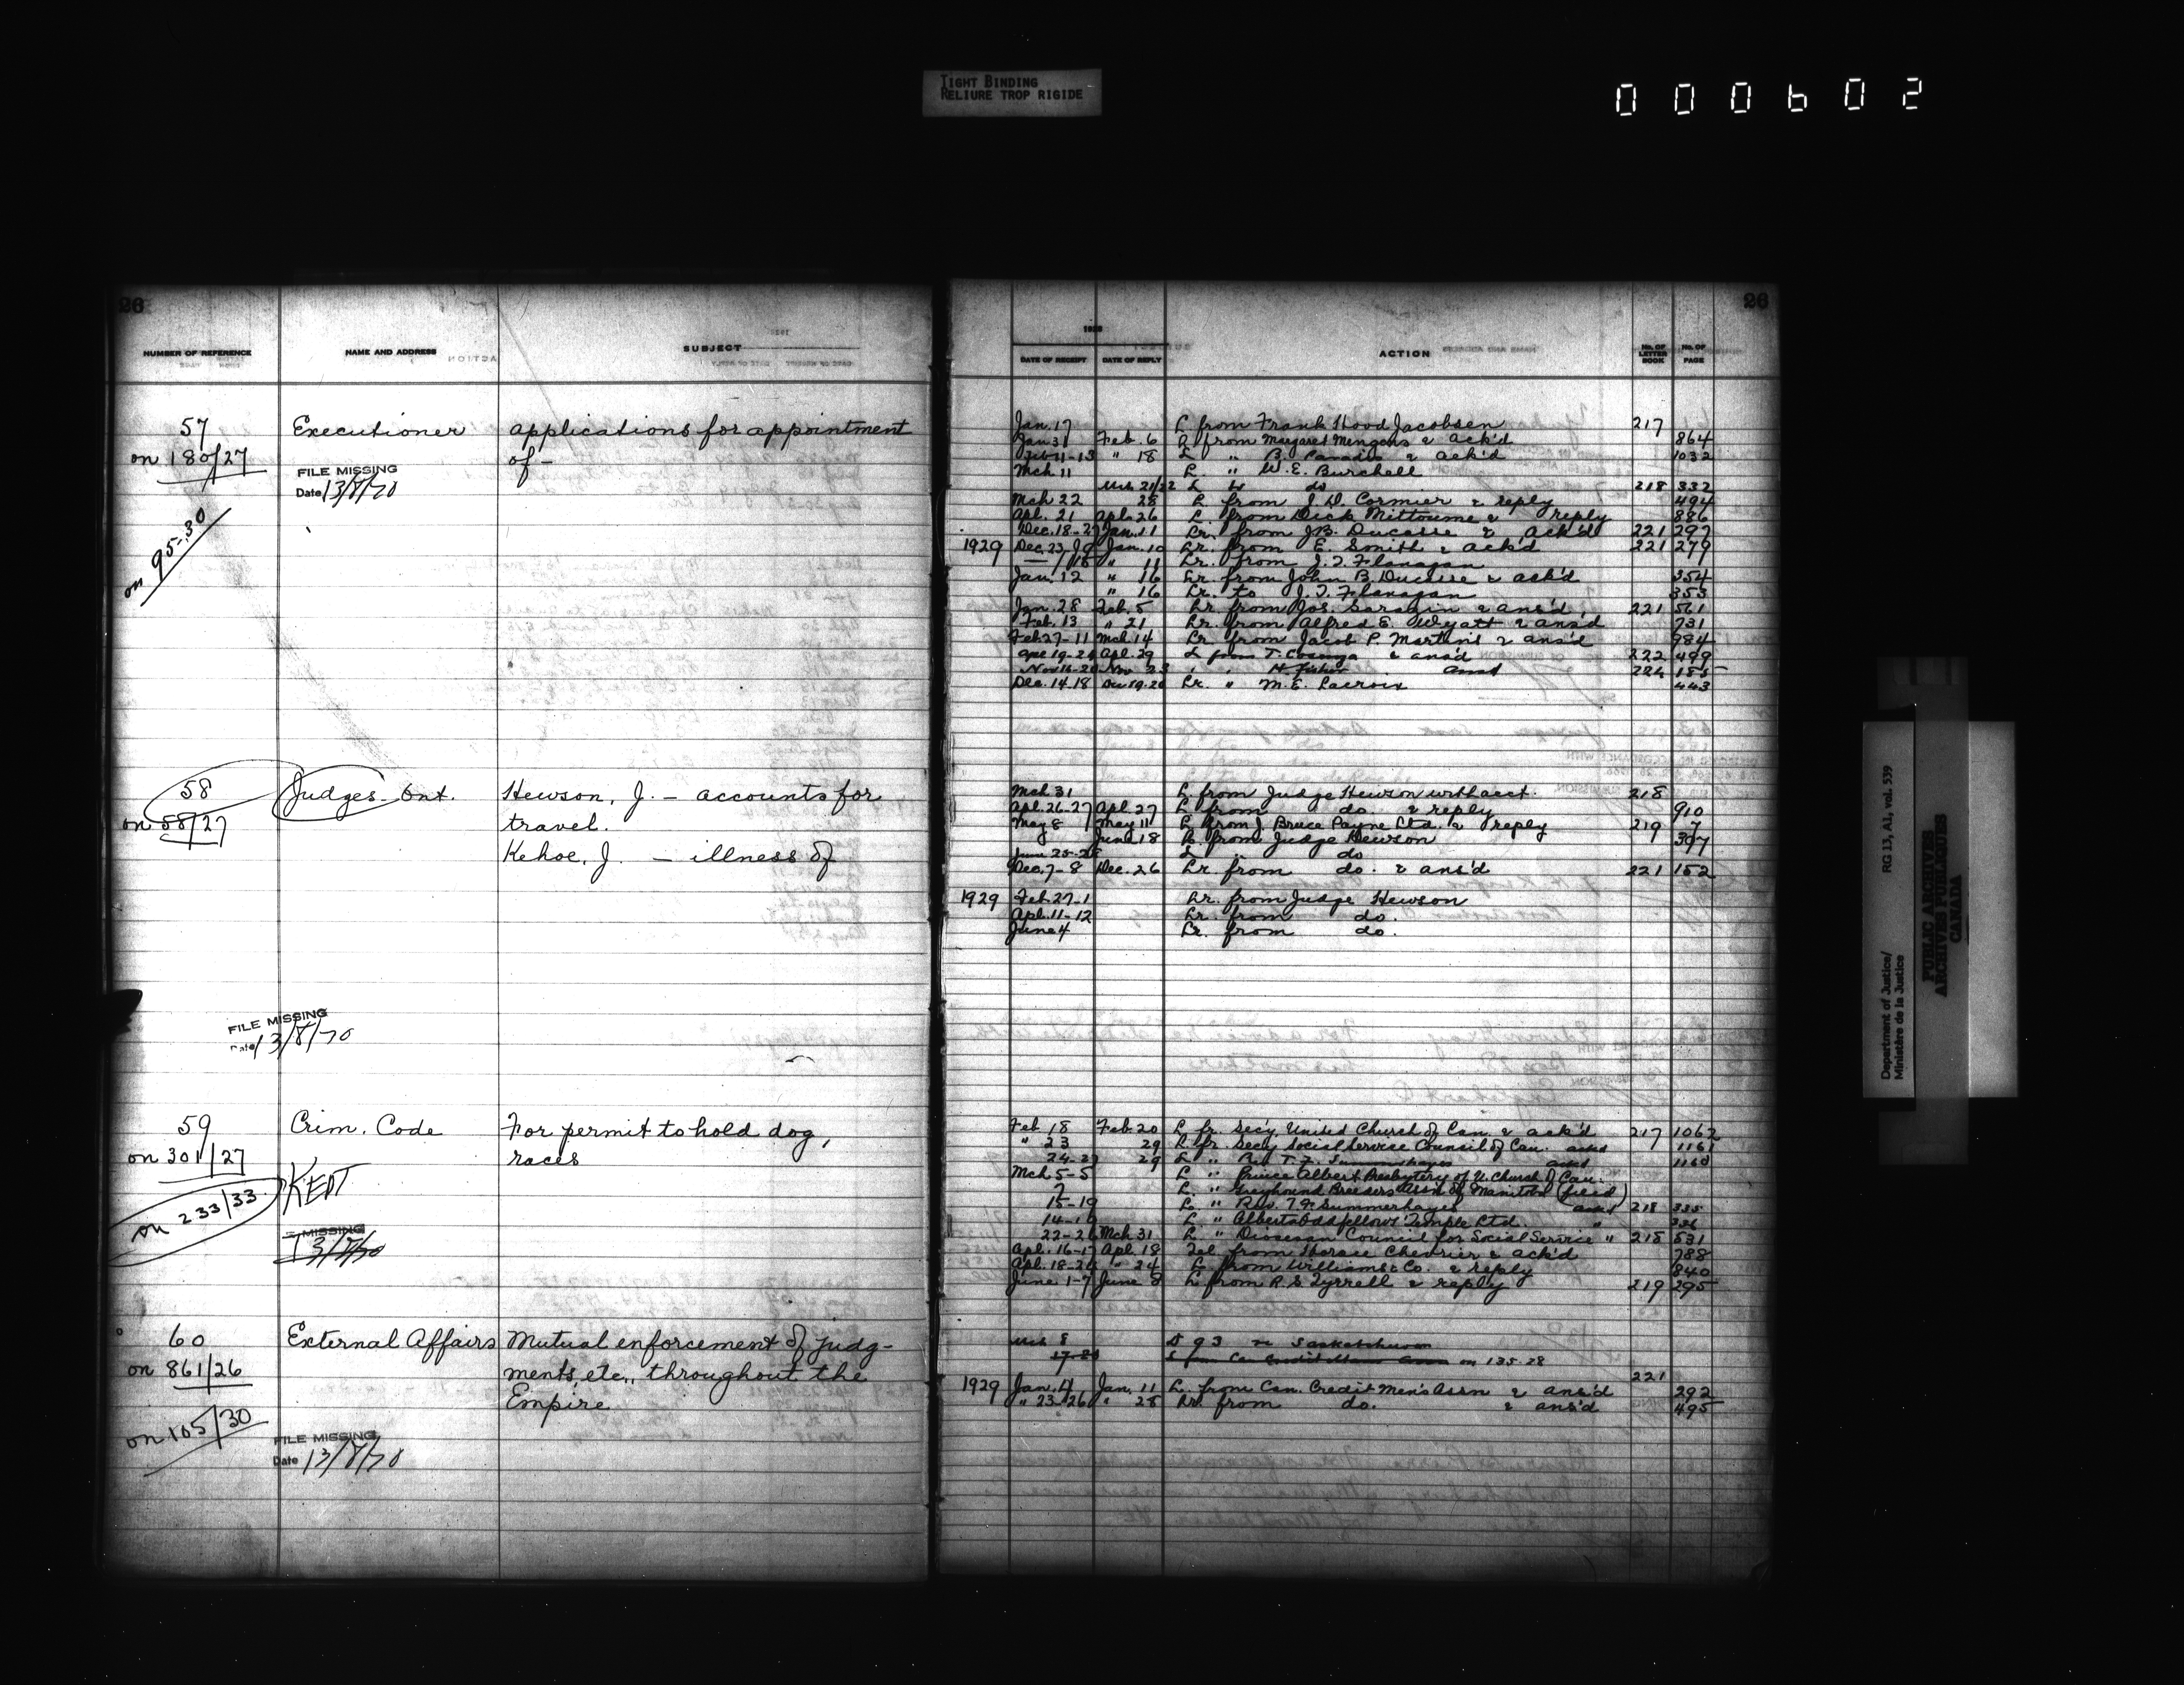 TIGHT BINDING
RELIURE TROP RIGIDE
000602
26
NUMBER OF REFERENCE NAME AND ADDRESS SUBJECT
57 Executioner applications for appointment
on 180/27 of -
FILE MISSING
Date 13/8/70
on 95-30
58 Judges - Ont. Hewson, J. - accounts for
on 58/27 travel.
Kehoe, J. - illness of
FILE MISSING
Date 13/8/70
59 Crim. Code For permit to hold dog,
on 301/27 races
KEPT
on 233/33
MISSING
13/8/70
60 External Affairs Mutual enforcement of judg-
on 861/26 ments, etc., throughout the
Empire
on 105/30
FILE MISSING
Date 13/8/70
26
1928
DATE OF RECEIPT DATE OF REPLY ACTION No. OF LETTER BOOK No. OF PAGE
Jan. 17 L from Frank Hood Jacobsen 217
Jan 31 Feb. 6 L from Margaret & ack'd 864
Feb 11-13 " 18 L " B. Paradis & ack'd 1032
Mch 11 L. " W. E. Burchell
Mch 21/22 L to do 218 332
Mch 22 28 L from J. D. Cormier & reply 494
Apl. 21 Apl. 26 L. from Dick & reply 886
Dec. 18-27 Jan. 11 Lr. from J.B. Ducasse & ack'd 221 297
1929 Dec. 23 Jan. 10 Lr. from E. Smith & ack'd 221 279
" 11 Lr. from J. T. Flanagan
Jan. 12 " 16 Lr from John B. Ducasse & ack'd 354
" 16 Lr. to J. T. Flanagan 353
Jan. 28 Feb. 5 Lr. from Jos. Sarazin & ans'd. 221 561
Feb. 13 " 21 Lr. from Alfred E. Wyatt & ans'd 731
Feb 27-11 Mch 14 Lr from Jacob P. & ans'd 984
Apl 19-24 Apl. 29 L from T. & ans'd 222 499
Nov 16-20 Nov 23 " " H. Fisher ansd 224 185
Dec. 14-18 Dec 19-20 Lr. " M. E. Lacroix 443
Mch 31 L. from Judge Hewson with acct. 218
Apl. 26-27 Apl 27 L from do & reply 910
May 8 May 11 L from J. Bruce Payne Ltd. & reply 219 7
June 18 L. from Judge Hewson 397
June 25-28 L do
Dec. 7-8 Dec. 26 Lr. from do. & ans'd 221 152
1929 Feb. 27-1 Lr. from Judge Hewson
Apl. 11-12 Lr. from do.
June 4 Lr. from do.
Feb 18 Feb. 20 L fr. Secy, United Church of Can. & ack'd 217 1062
" 23 29 L fr. Secy Social Service Council of Can. ackd 1161
24-27 29 L " Rev. T. F. Summerhayes ackd 1160
Mch 5-5 L " Prince Albert Presbytery of U. Church of Can.
7 L. " Greyhound Breeders Assn of Manitoba (filed)
15-19 L " Rev. T. F. Summerhayes ackd 218 335
14-19 L " Alberta Oddfellows Temple Ltd. " 336
22-26 Mch 31 L " Diocesan Council for Social Service " 218 531
Apl. 16-17 Apl. 18 Tel from Horace Chevrier & ack'd 788
Apl. 18-24 " 24 L from Williams & Co. & reply 840
June 1-7 June 8 L from R. S. Tyrrell & reply 219 295
Mch 8 D 93 re Saskatchewan
17-20 L from Can Credit Mens Assn on 135-28
221
1929 Jan. 4 Jan. 11 L. from Can. Credit Men's Assn & ans'd 292
" 23-26 " 28 Lr. from do. & ans'd 495
Department of Justice/
Ministère de la Justice
RG 13, A1, vol. 539
PUBLIC ARCHIVES
ARCHIVES PUBLIQUES
CANADA